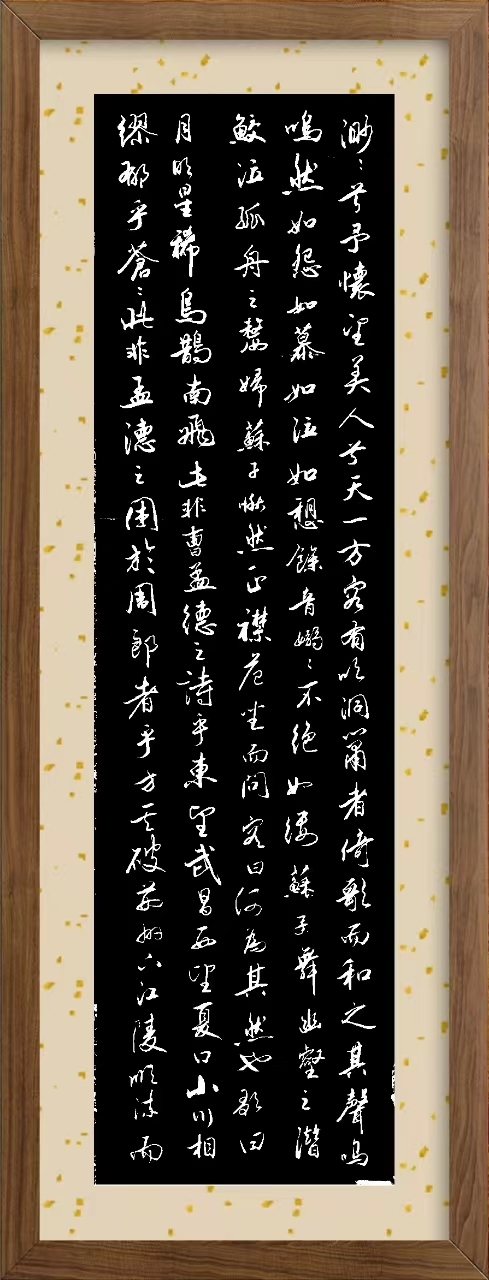 渺〻兮予懷望美人兮天一方客有吹洞簫者倚歌而和之其聲嗚
嗚然如怨如慕如泣如愬餘音嫋〻不絕如縷蘇子舞幽壑之潛
鮫泣孤舟之嫠婦蘇子愀然正襟危坐而問客曰何為其然也曰
月明星稀烏鵲南飛此非曹孟德之詩乎東望武昌西望夏口小川相
繆郁乎蒼〻此非孟德之困於周郎者乎方其破荊州下江陵順流而